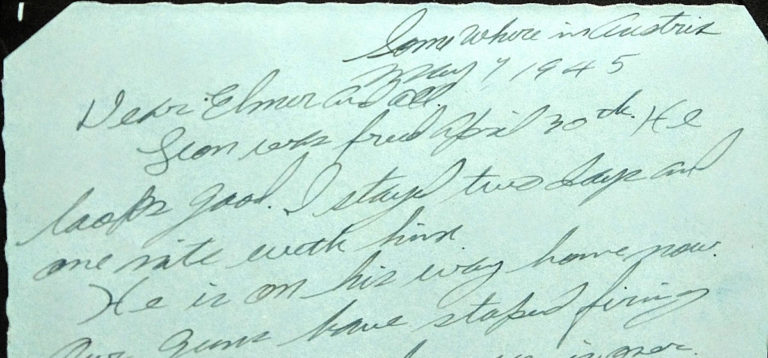 Somewhere in Austria
May 7, 1945
Dear Elmer and all.
Leon was freed April 30th. He
looks good. I stayd two days and
one nite with him.
He is on his way home now.
Our guns have stoped firing